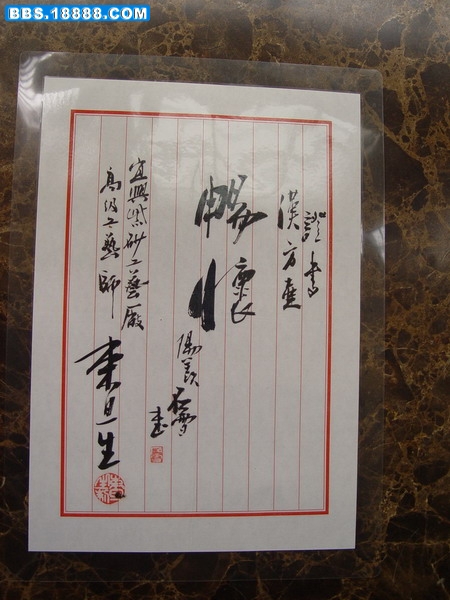 BBS.18888.COM
證書
漢方壺
暢懷
陽羨 書
宜興紫砂工藝廠
高級工藝師
束旦生